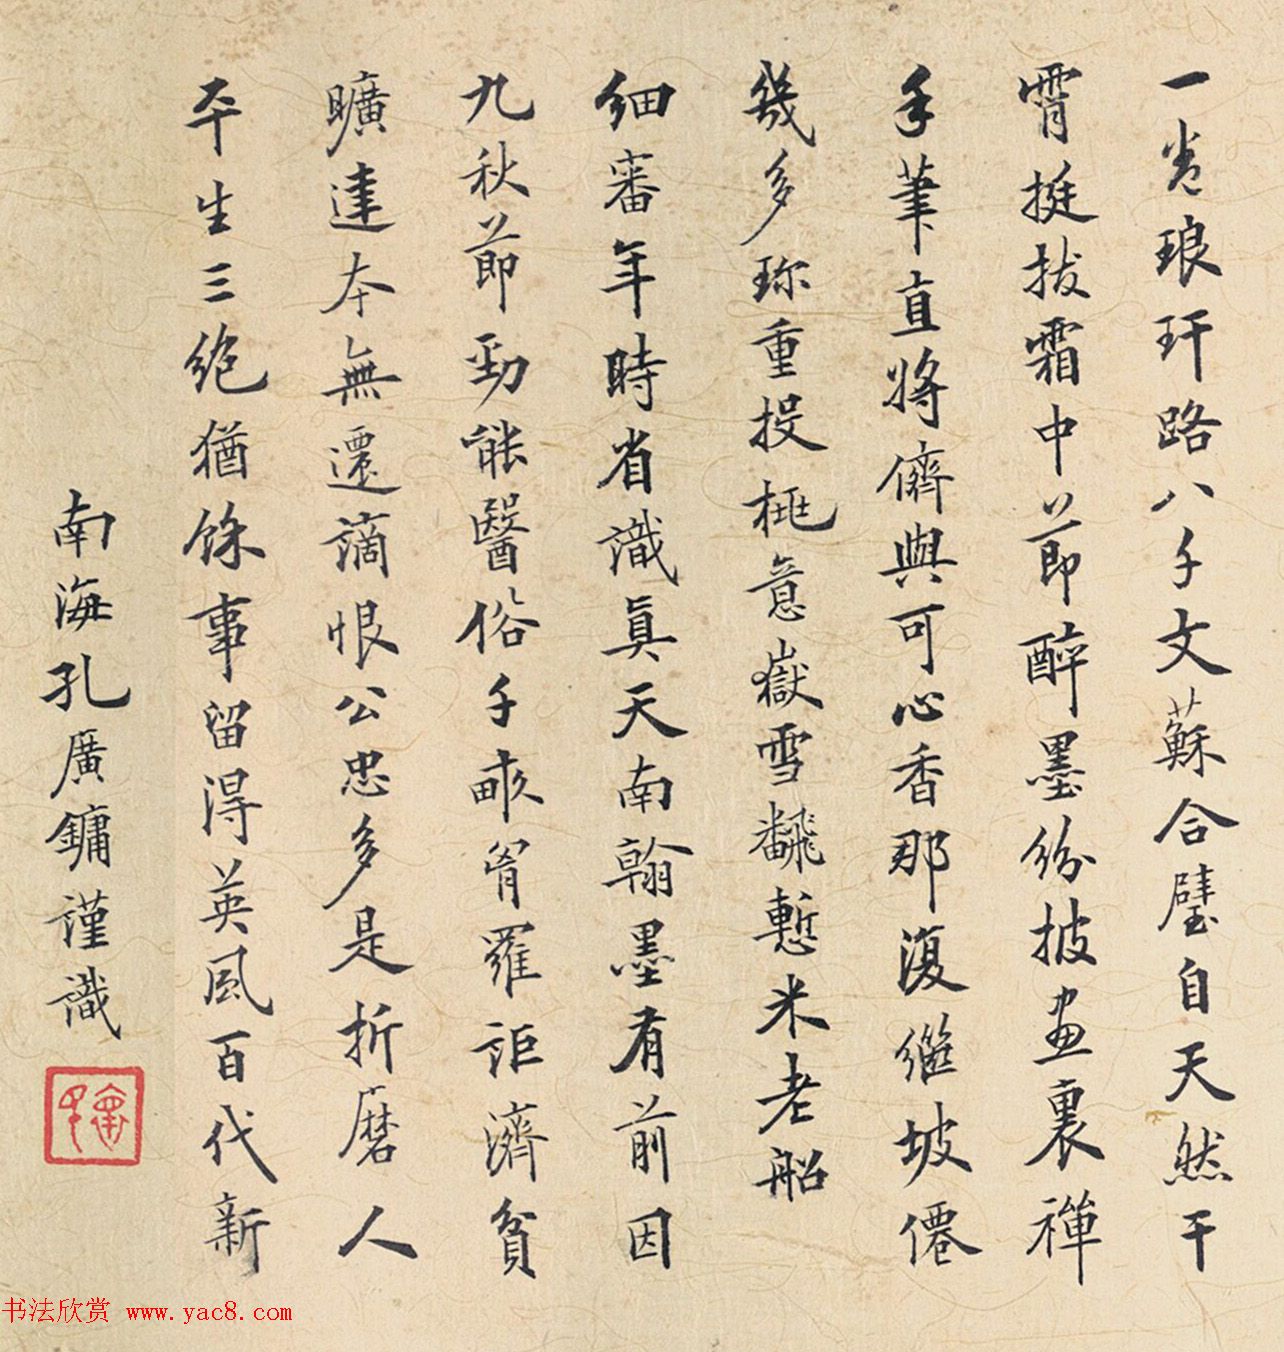 一卷琅玕路八千文蘇合璧自天然干
霄挺拔霜中節醉墨紛披畫裏禪
手筆直將儕與可心香那復繼坡僊
幾多珍重投桃意嶽雪飜慙米老船
細審年時省識真天南翰墨有前因
九秋節勁能醫俗千畝胷羅詎濟貧
曠達本無遷謫恨公忠多是折磨人
平生三絕猶餘事留得英風百代新
南海孔廣鏞謹識
书法欣赏 www.yac8.com